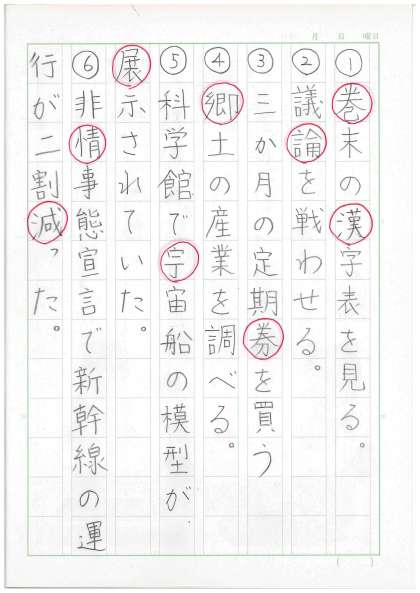 月 日 曜日
①巻末の漢字表を見る。
②議論を戦わせる。
③三か月の定期券を買う
④郷土の産業を調べる。
⑤科学館で宇宙船の模型が
展示されていた。
⑥非情事態宣言で新幹線の運
行が二割減った。
( )